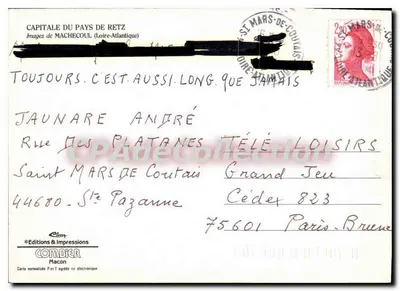 CAPITALE DU PAYS DE RETZ
Images de MACHECOUL (Loire-Atlantique)
44-ST MARS-DE-COUTAIS
LOIRE-ATLANTIQUE
TOUJOURS. C'EST. AUSSI. LONG. QUE JAMAIS
JAUNARE ANDRÉ
Rue DES PLATANES
Saint MARS DE Coutais
44680 - Ste Pazanne
TÉLÉ LOISIRS
Grand Jeu
Cédex 823
75601 Paris-Brune
CPAdeCollection
Editions & Impressions
COMBIER
Macon